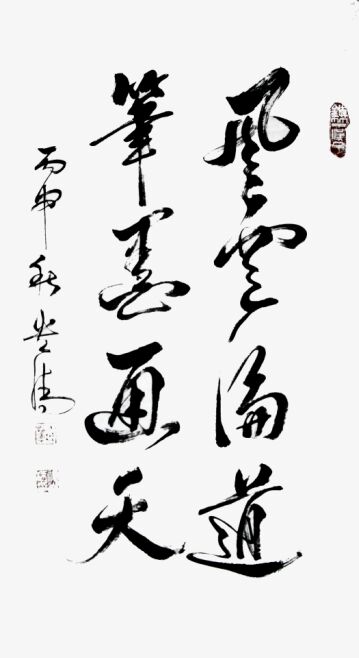 風雲論道
筆墨通天
丙申秋